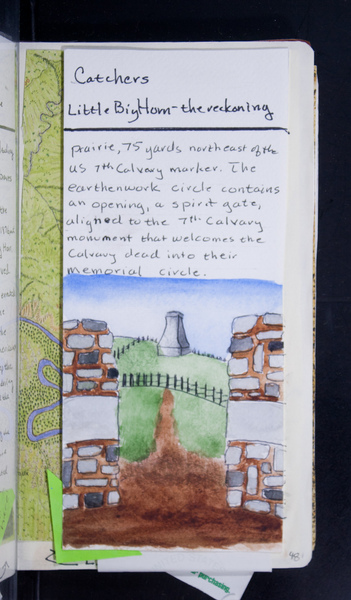 Catchers
Little BigHorn - the reckoning
prairie, 75 yards northeast of the
US 7th Calvary marker. The
earthenwork circle contains
an opening, a spirit gate,
aligned to the 7th Calvary
monument that welcomes the
Calvary dead into their
memorial circle.
98
purchasing